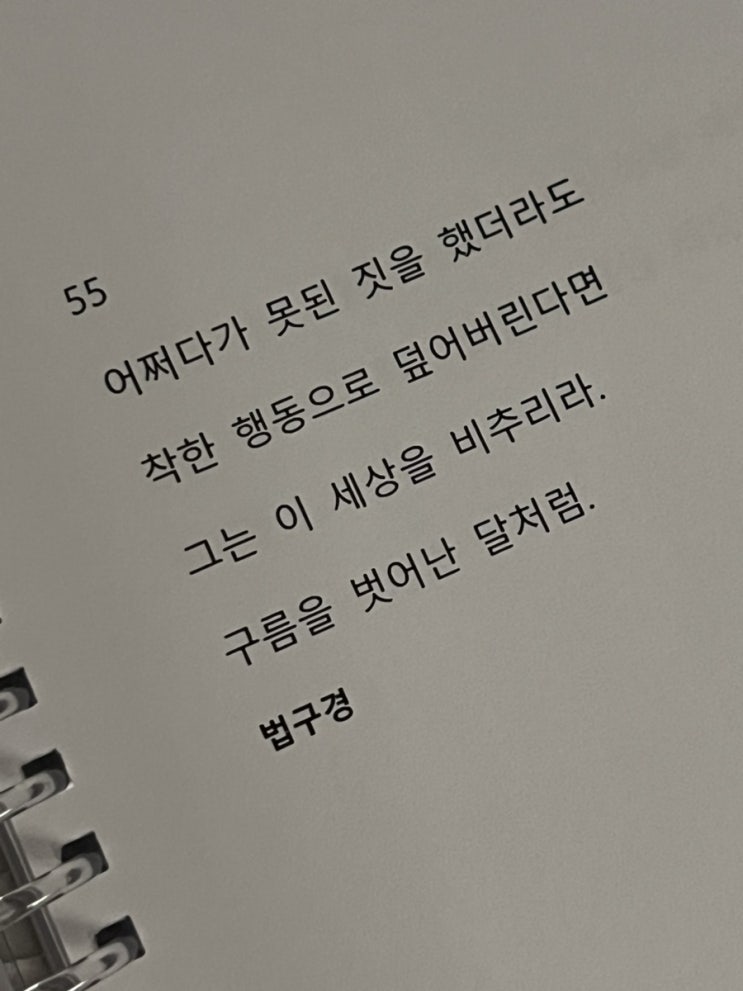 55
어쩌다가 못된 짓을 했더라도
착한 행동으로 덮어버린다면
그는 이 세상을 비추리라.
구름을 벗어난 달처럼.
법구경